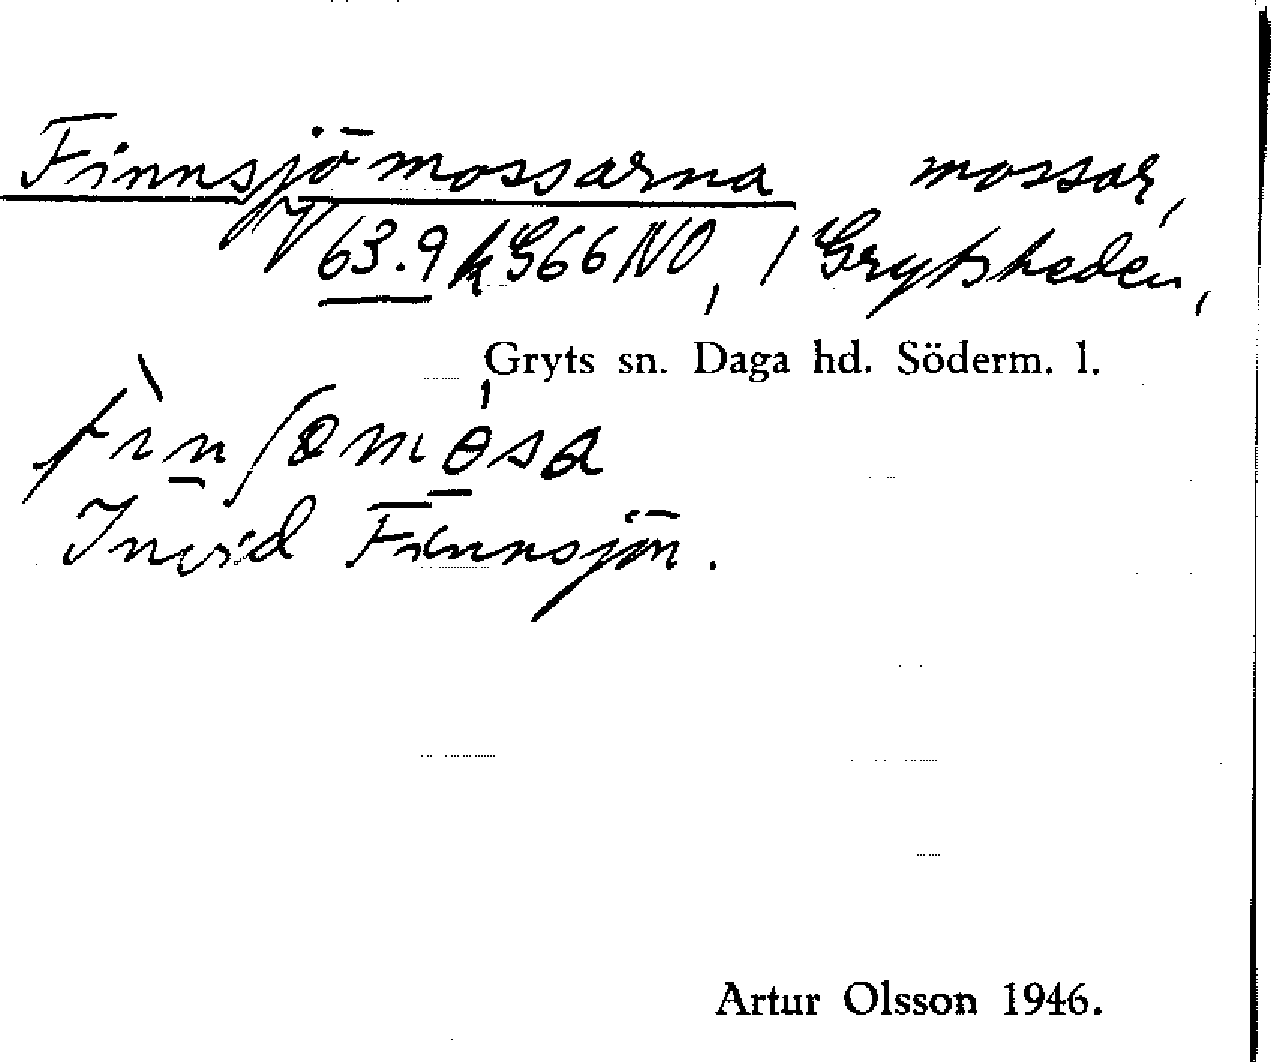 Finnsjömossarna mossar,
V 63.9 k G66NO, / Grytsheden,
Gryts sn. Daga hd. Söderm. l.
Invid Finnsjön.
Artur Olsson 1946.